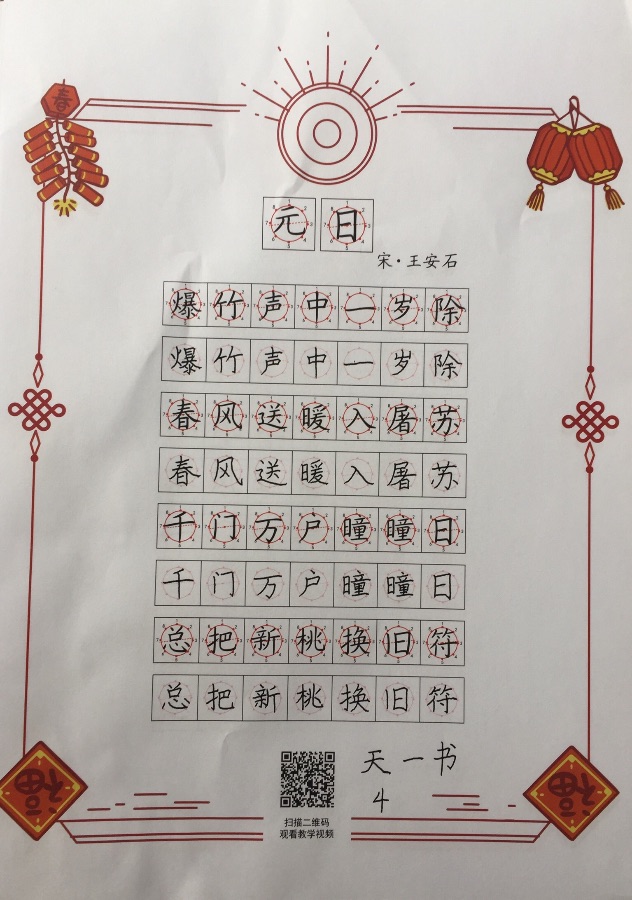 春
元日
宋·王安石
爆竹声中一岁除
爆竹声中一岁除
春风送暖入屠苏
春风送暖入屠苏
千门万户曈曈日
千门万户瞳瞳日
总把新桃换旧符
总把新桃换旧符
天一书
4
扫描二维码
观看教学视频
福
福